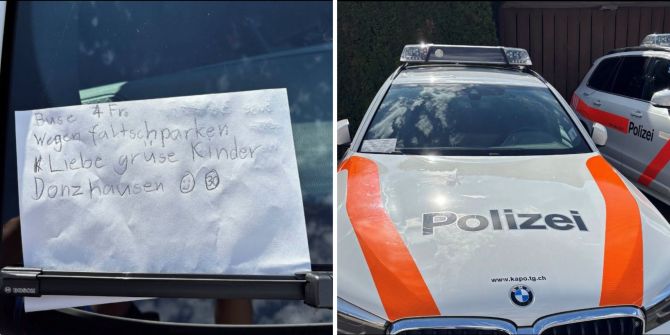 Buse 4 Fr.
Wegen faltschparken
Liebe grüse Kinder
Donzhausen
BOSCH
Polizei
www.kapo.tg.ch
BMW
Polizei